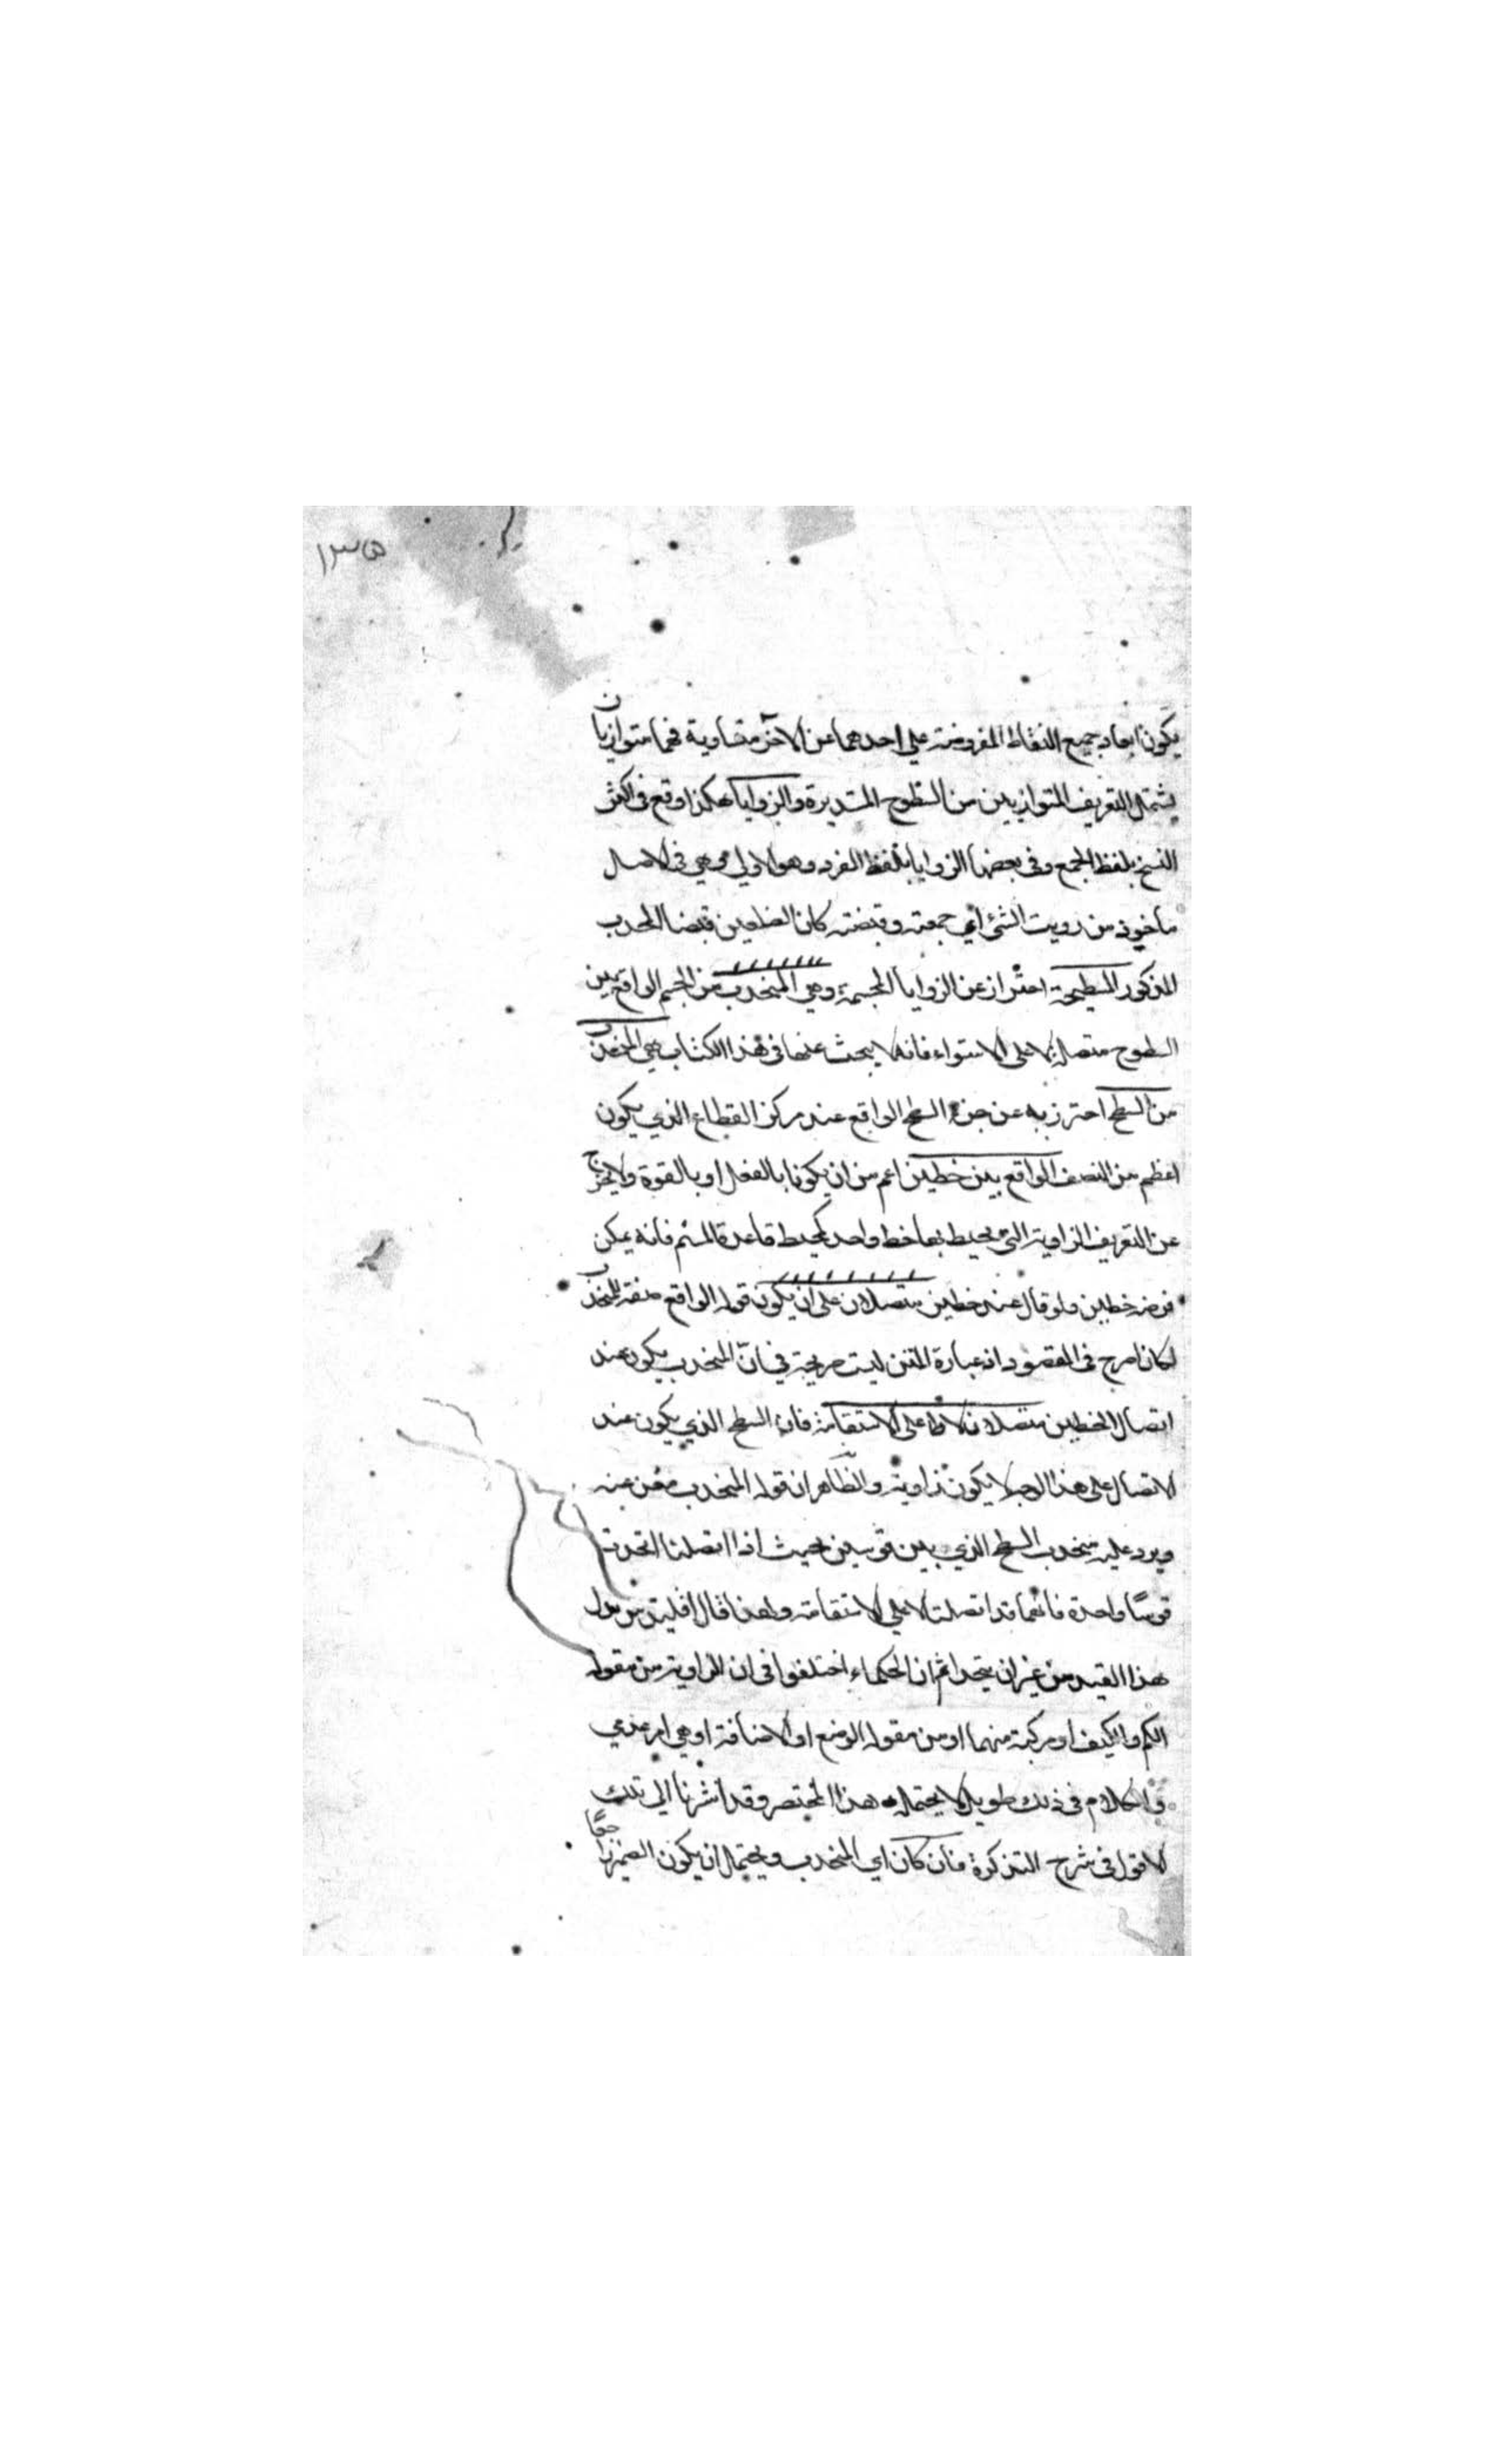 ١٣٥
يكون ابعاد جميع النقاط المفروضة على احدهما عن الآخر متساوية فهما متوازيان
يشتمل التعريف المتوازيين من السطوح المستديرة والزوايا هكذا وقع في اكثر
النسخ بلفظ الجمع وفي بعضها الزوايا بلفظ المفرد وهو الاولى وهي في الاصل
مأخوذ من زويت الشئ اي جمعته وقبضته كان الضلعين قبضا المحدب
المذكور المسطحة احتراز عن الزوايا المجسمة وهي المنحدب من الجسم الواقع بين
السطوح متصلة لا على الاستواء فانه لا يبحث عنها في هذا الكتاب هي المنحدب
من السطح احترز به عن جزء السطح الواقع عند مركز القطاع الذي يكون
اعظم من النصف الواقع بين خطين اعم من ان يكونا بالفعل او بالقوة ولا يخرج
عن التعريف الزاوية التي يحيط بها خط واحد كمحيط قاعدة فانه يمكن
فرضه خطين ولو قال عند خطين متصلان على ان يكون قوله الواقع صفة المنحدب
لكان اصرح في المقصود اذ عبارة المتن ليست صريحة في انّ المنحدب يكون عند
اتصال الخطين متصلان لا على الاستقامة فان السطح الذي يكون عند
الاتصال على هذا الوجه لا يكون زاوية والظاهر ان قوله المنحدب مغن عنه
ويرد عليه منحدب السطح الذي بين قوسين بحيث اذا اتصلتا اتحدتا
قوسًا واحدة فانهما قد اتصلتا لا على الاستقامة ولهذا قال اقليدس بدل
هذا القيد من غير ان يتحدا ثم ان الحكماء اختلفوا في ان الزاوية من مقولة
الكم والكيف او مركبة منهما او من مقولة الوضع او الاضافة او هي امر عدمي
والكلام في ذلك طويل لا يحتمله هذا المختصر وقد اشرنا الى تلك
الاقول في شرح التذكرة فان كان اي المنحدب ويحتمل ان يكون الضمير